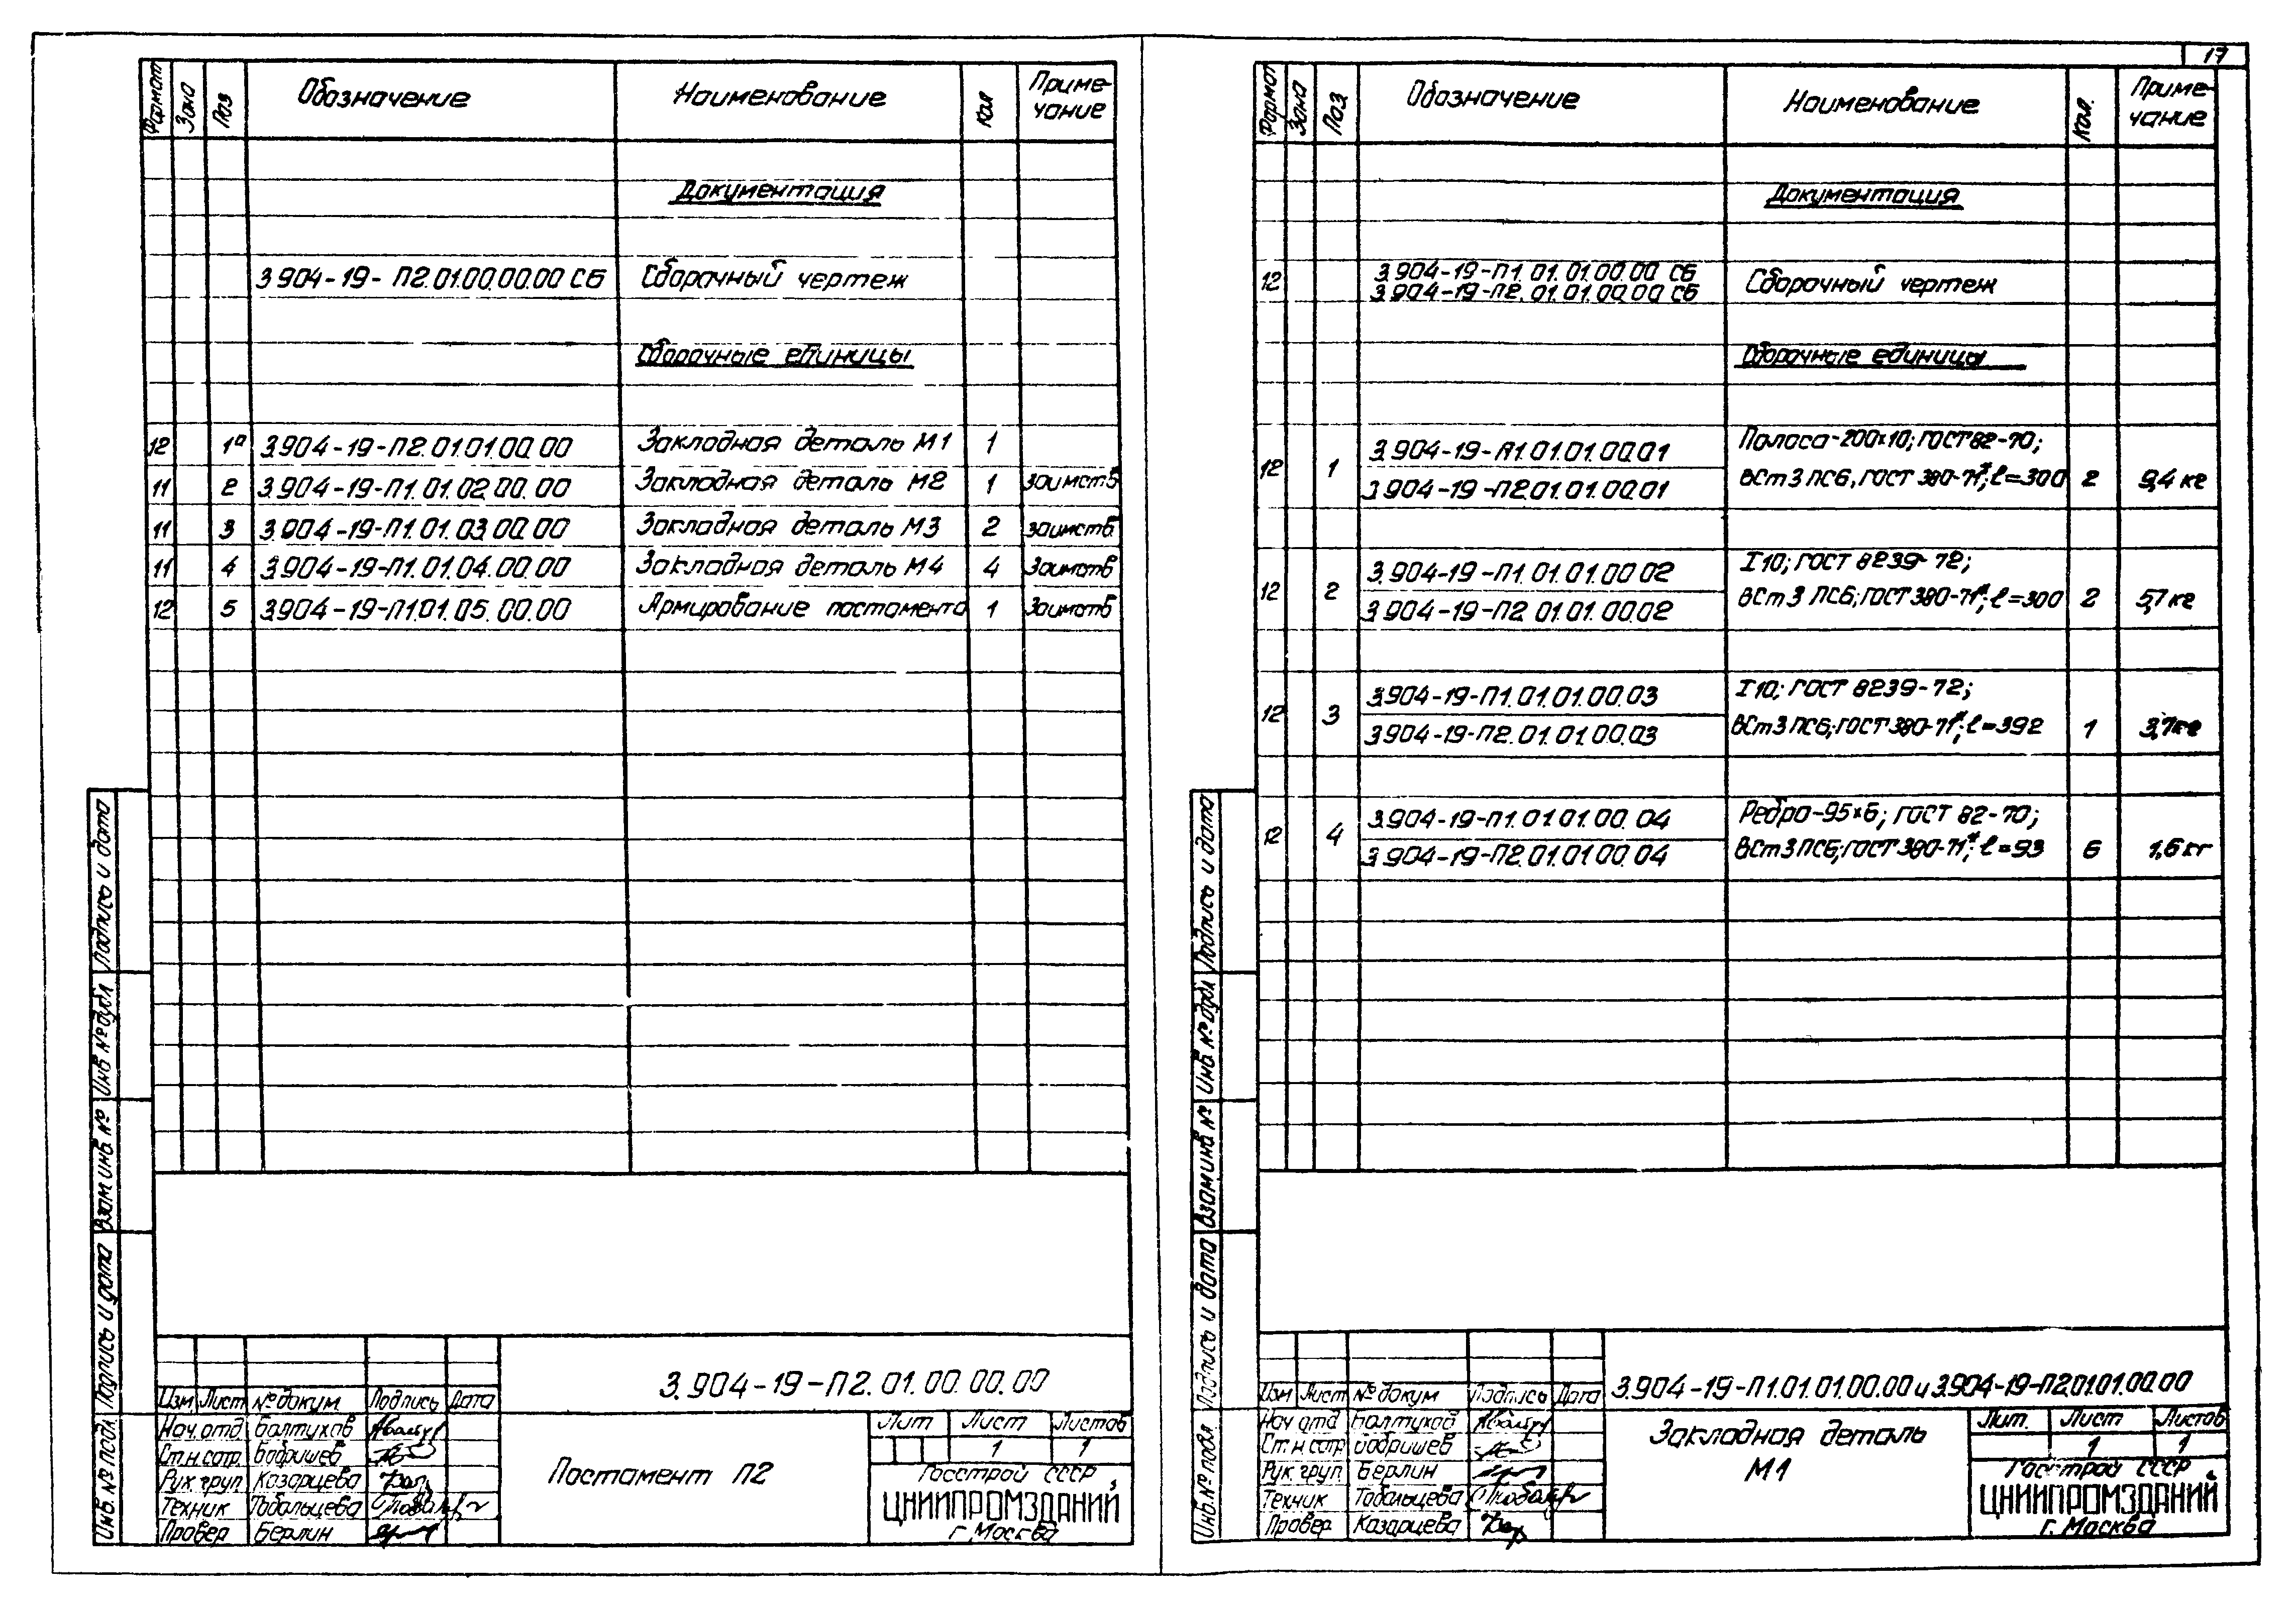 17
Формат Зона Поз Обозначение Наименование Кол Приме-
чание
Документация
3.904-19-П2.01.00.00.00 СБ Сборочный чертеж
Сборочные единицы
12 1а 3.904-19-П2.01.01.00.00 Закладная деталь М1 1
11 2 3.904-19-П1.01.02.00.00 Закладная деталь М2 1 заимств
11 3 3.904-19-П1.01.03.00.00 Закладная деталь М3 2 заимств
11 4 3.904-19-П1.01.04.00.00 Закладная деталь М4 4 Заимств
12 5 3.904-19-П1.01.05.00.00 Армирование постамента 1 Заимств
Инв.№ подл Подпись и дата Взам инв № Инв № дубл Подпись и дата
3.904-19-П2.01.00.00.00
Изм Лист № докум Подпись Дата
Нач.отд Балтухов
Ст.н.сотр. Бобришев
Рук. груп. Казарцева
Техник Тобольцева
Провер Берлин
Постамент П2
Лит Лист Листов
1 1
Госстрой СССР
ЦНИИПРОМЗДАНИЙ
г. Москва
Формат Зона Поз. Обозначение Наименование Кол. Приме-
чание
Документация
12 3.904-19-П1.01.01.00.00 СБ
3.904-19-П2.01.01.00.00 СБ Сборочный чертеж
Сборочные единицы
3.904-19-П1.01.01.00.01 Полоса-200х10; ГОСТ 82-70;
12 1 3.904-19-П2.01.01.00.01 ВСт3 ПС6, ГОСТ 380-71*; ℓ=300 2 9,4 кг
3.904-19-П1.01.01.00.02 I10; ГОСТ 8239-72;
12 2 3.904-19-П2.01.01.00.02 ВСт3 ПС6; ГОСТ 380-71*; ℓ=300 2 5,7 кг
3.904-19-П1.01.01.00.03 I10; ГОСТ 8239-72;
12 3 3.904-19-П2.01.01.00.03 ВСт3 ПС6; ГОСТ 380-71*; ℓ=392 1 3,7 кг
3.904-19-П1.01.01.00.04 Ребро-95х6; ГОСТ 82-70;
12 4 3.904-19-П2.01.01.00.04 ВСт3 ПС6; ГОСТ 380-71*; ℓ=93 6 1,6 кг
Инв.№ подл Подпись и дата Взам инв № Инв № дубл Подпись и дата
3.904-19-П1.01.01.00.00 и 3.904-19-П2.01.01.00.00
Изм Лист № докум Подпись Дата
Нач отд Балтухов
Ст.н сотр Бобришев
Рук. груп Берлин
Техник Тобольцева
Провер Казарцева
Закладная деталь
М1
Лит. Лист Листов
1 1
Госстрой СССР
ЦНИИПРОМЗДАНИЙ
г. Москва